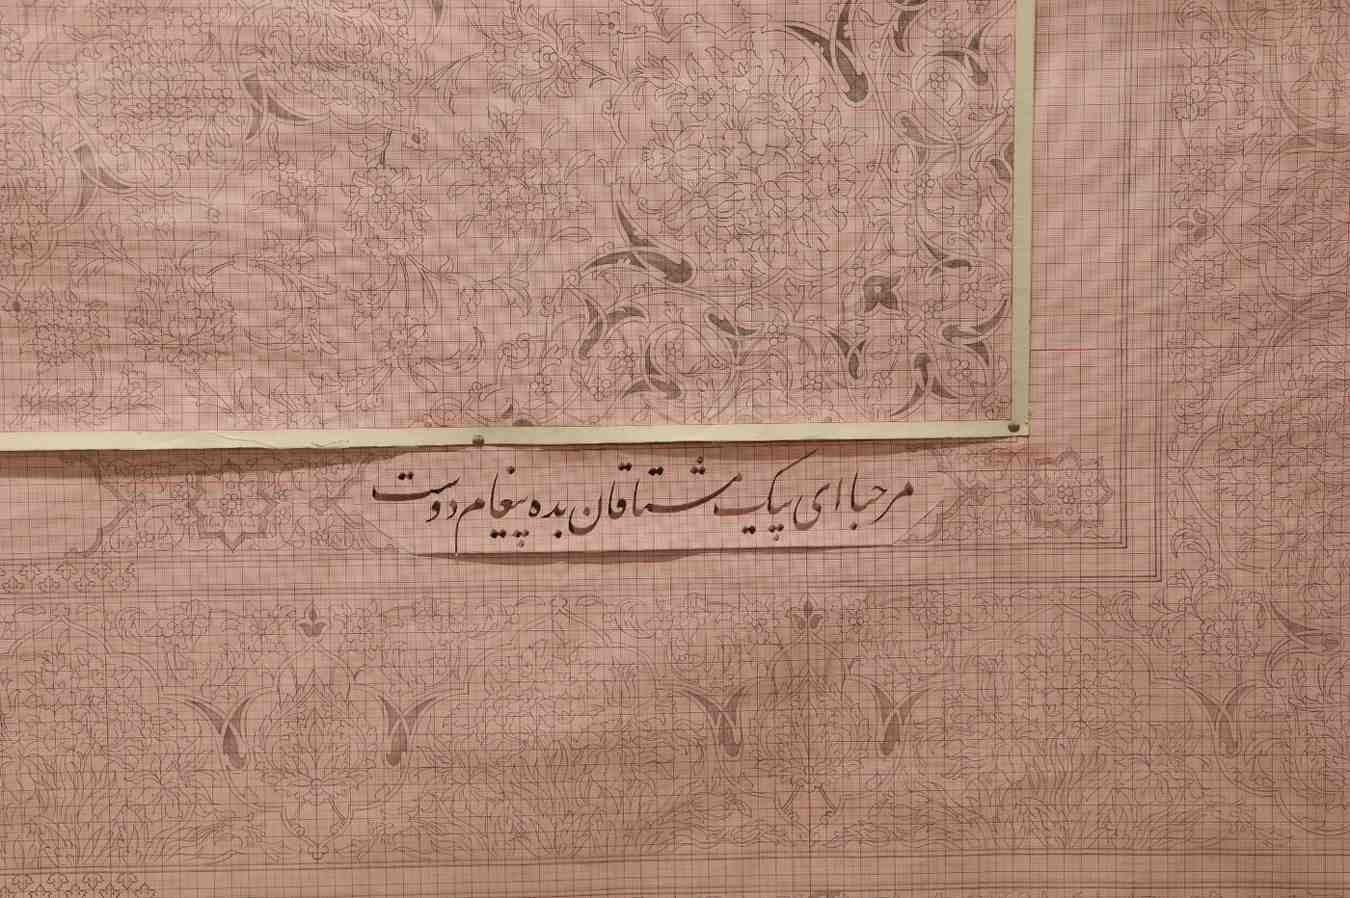 مرحبا ای پیک مشتاقان بده پیغام دوست